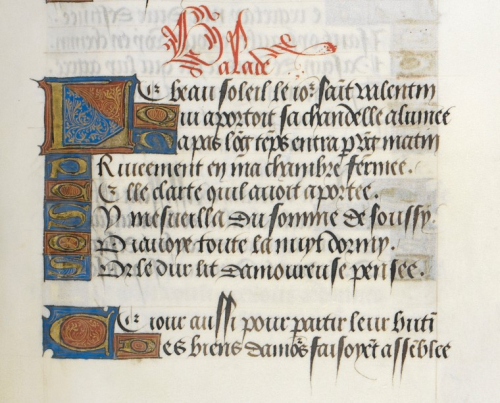 Balade
Le beau soleil le io.r saīt valentin
Qui aportoit sa chandelle alumee
Na pas lōg tēps entra p vng matin
Priueement en ma chambre fermee.
Celle clarte quil auoit aportee.
Si mesueilla du somme de soussy.
Ou iauoye toute la nuyt dormy.
Sur le dur lit damoureuse pensee.
Ce iour aussi pour partir leur butī
Les biens damo.rs faisoyēt assēblee